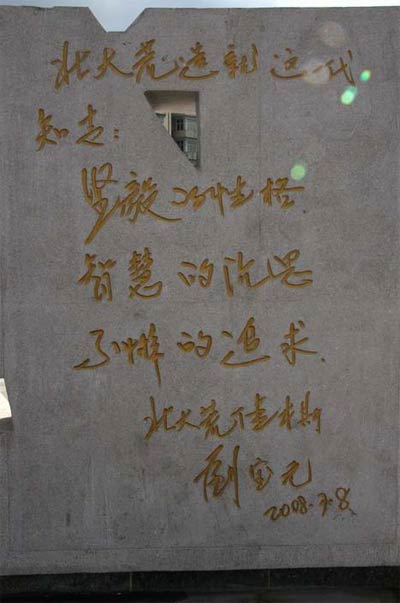 北大荒造就这代
知青：
坚毅的性格
智慧的沉思
不懈的追求.
北大荒 木斯
刘宝元
2008.7.8